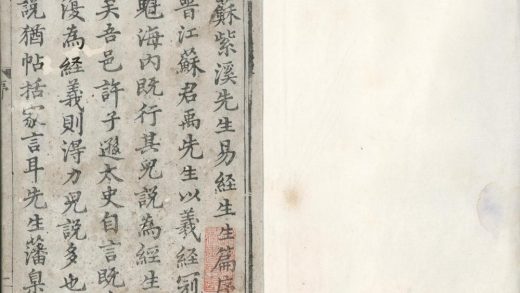 蘇紫溪先生易經生生篇序
晉江蘇君禹先生以羲經冠
魁海内既行其兒説為經生
矣吾邑許子遜太史自言既
為経義則得力兒説多也
説猶帖括家言耳先生藩臬
序